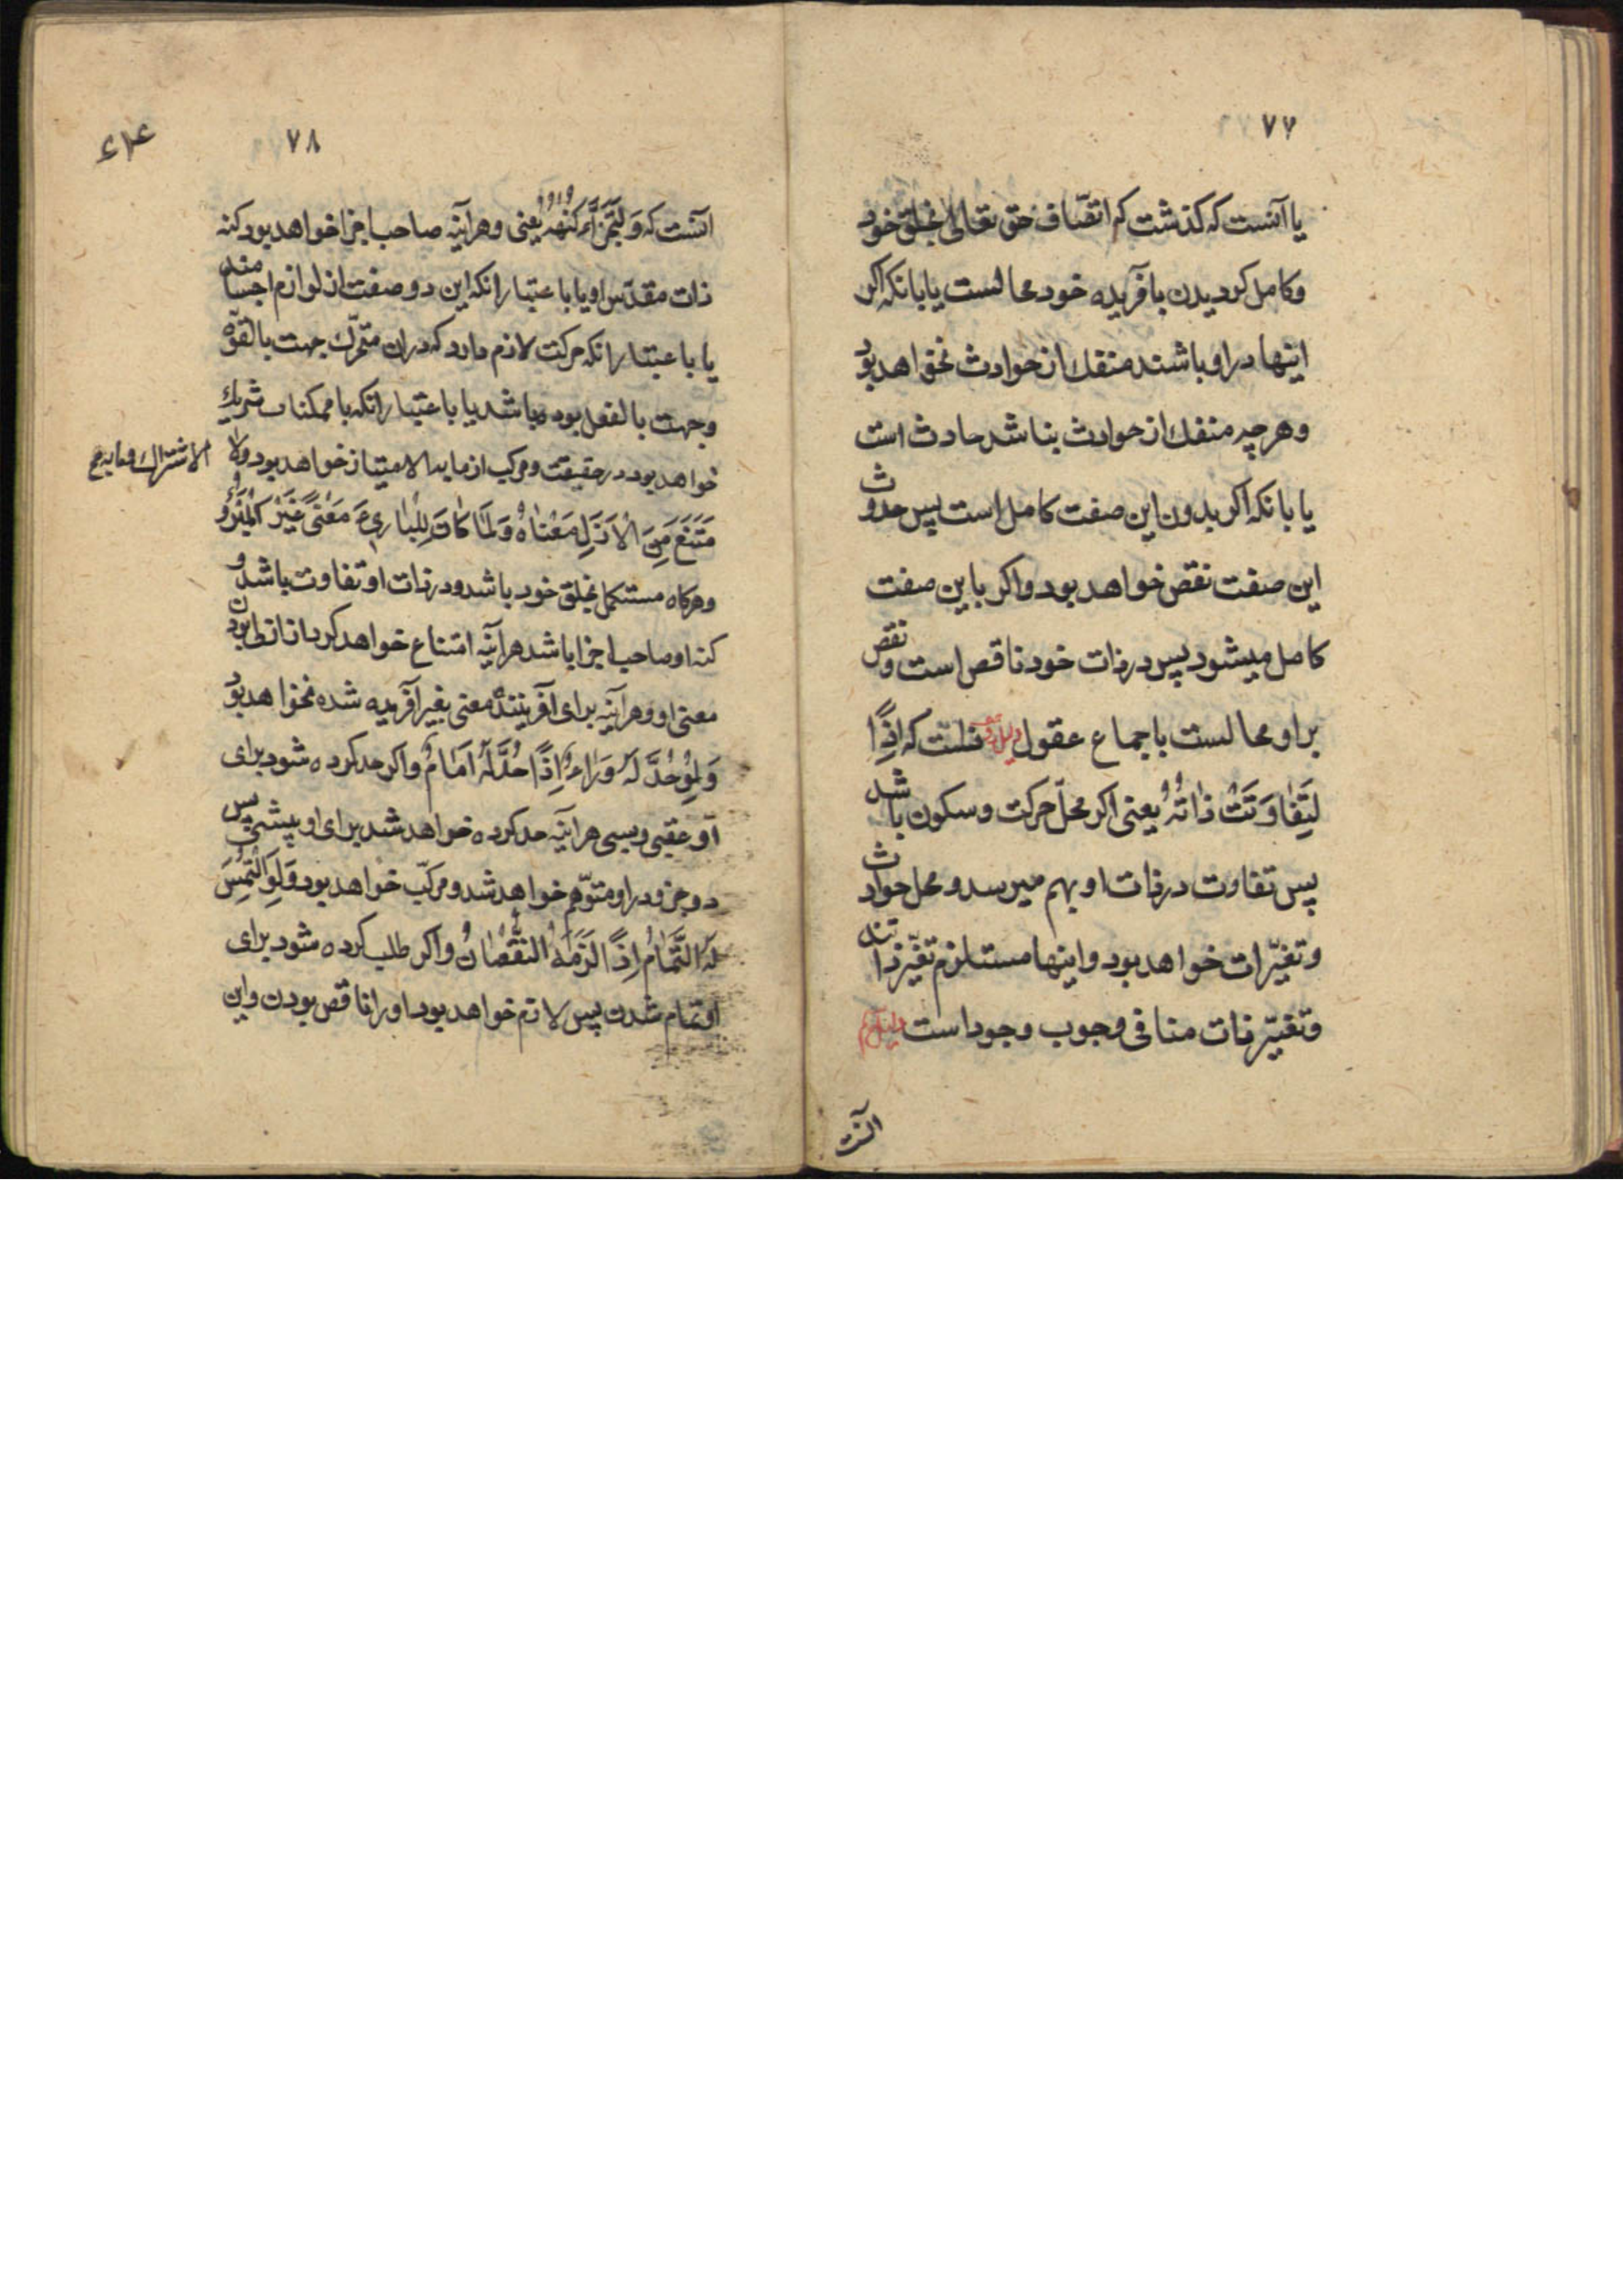 ۷۷
یا آنست که کذشت که اتّصاف حق تعالی بخلق خود
وکامل کردیدن بآفریده خود محالست یا بانکه اکر
اینها در او باشند منفک از حوادث نخواهد بود
وهرچه منفک از حوادث نباشد حادث است
یا بانکه اکر بدون این صفت کامل است پس حدوث
این صفت نقص خواهد بود واکر باین صفت
کامل میشود پس در ذات خود ناقص است ونقص
بر او محالست باجماع عقول دلیل دوم آنست که اِذًا
لَتَفَاوَتَتْ ذَاتُهُ یعنی اکر محلّ حرکت وسکون باشد
پس تفاوت در ذات او بهم میرسد ومحل حوادث
وتغیّرات خواهد بود واینها مستلزم تغیّر ذاتند
وتغیّر ذات منافی وجوب وجود است
آنست
۷۸
آنست که وَلَتَجَزَّءَ کُنْهُهُ یعنی وهرآینه صاحب اجزا خواهد بود کنه
ذات مقدّس او یا باعتبار انکه این دو صفت از لوازم اجسامند
یا باعتبار انکه حرکت لازم دارد که دران متحرّک جهت بالقوّه
وجهت بالفعل بوده باشد یا باعتبار انکه با ممکنات شریک
خواهد بود در حقیقت ومرکب از مابه الامتیاز خواهد بود ولا
الاشتراک ومابه
مْتَنَعَ مِنَ الْاَزَلِ مَعْنَاهُ وَلَمَا کَانَ لِلْبَارِیءِ مَعْنًی غَیْرَ الْمَبْرُوءِ
وهرکاه مستکمل بخلق خود باشد ودر ذات او تفاوت باشد و
کنه او صاحب اجزا باشد هرآینه امتناع خواهد کرد از ازلی بودن
معنی او وهرآینه برای آفریننده معنی بغیر آفریده شده نخواهد بود
وَلَوْ حُدَّ لَهُ وَرَاءٌ اِذًا حُدَّ لَهُ اَمَامٌ واکر حد کرده شود برای
او عقبی وپسی هرآینه حد کرده خواهد شد برای او پیشی پس
دو جزو در او متوهّم خواهد شد ومرکّب خواهد بود وَلَوِ الْتُمِسَ
لَهُ التَّمَامُ اِذًا لَزِمَهُ النُّقْصَانُ واکر طلب کرده شود برای
او تمام شدن پس لازم خواهد بود او را ناقص بودن واین